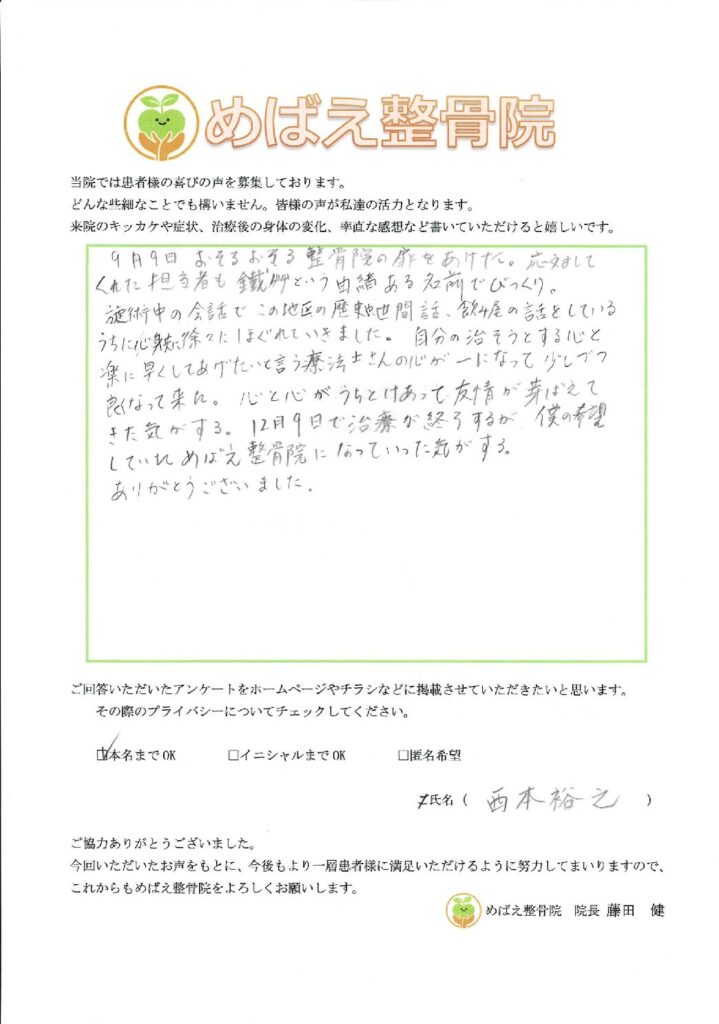 めばえ整骨院
当院では患者様の喜びの声を募集しております。
どんな些細なことでも構いません。皆様の声が私達の活力となります。
来院のキッカケや症状、治療後の身体の変化、率直な感想など書いていただけると嬉しいです。
9月9日 おそるおそる整骨院の扉をあけた。応対して
くれた担当者も という由緒ある名前でびっくり。
施術中の会話でこの地区の歴史、世間話、飲み屋の話をしている
うちに心身共に徐々にほぐれていきました。自分の治そうとする心と
楽に早くしてあげたいと言う療法士さんの心が一になって少しづつ
良くなって来た。心と心がうちとけあって友情が芽ばえて
きた気がする。12月9日で治療が終了するが、僕の希望
めばえ整骨院になっていった気がする。
ありがとうございました。
ご回答いただいたアンケートをホームページやチラシなどに掲載させていただきたいと思います。
その際のプライバシーについてチェックしてください。
本名までOK □イニシャルまでOK □匿名希望
氏名( 西本裕之 )
ご協力ありがとうございました。
今回いただいたお声をもとに、今後もより一層患者様に満足いただけるように努力してまいりますので、
これからもめばえ整骨院をよろしくお願いします。
めばえ整骨院 院長 藤田 健